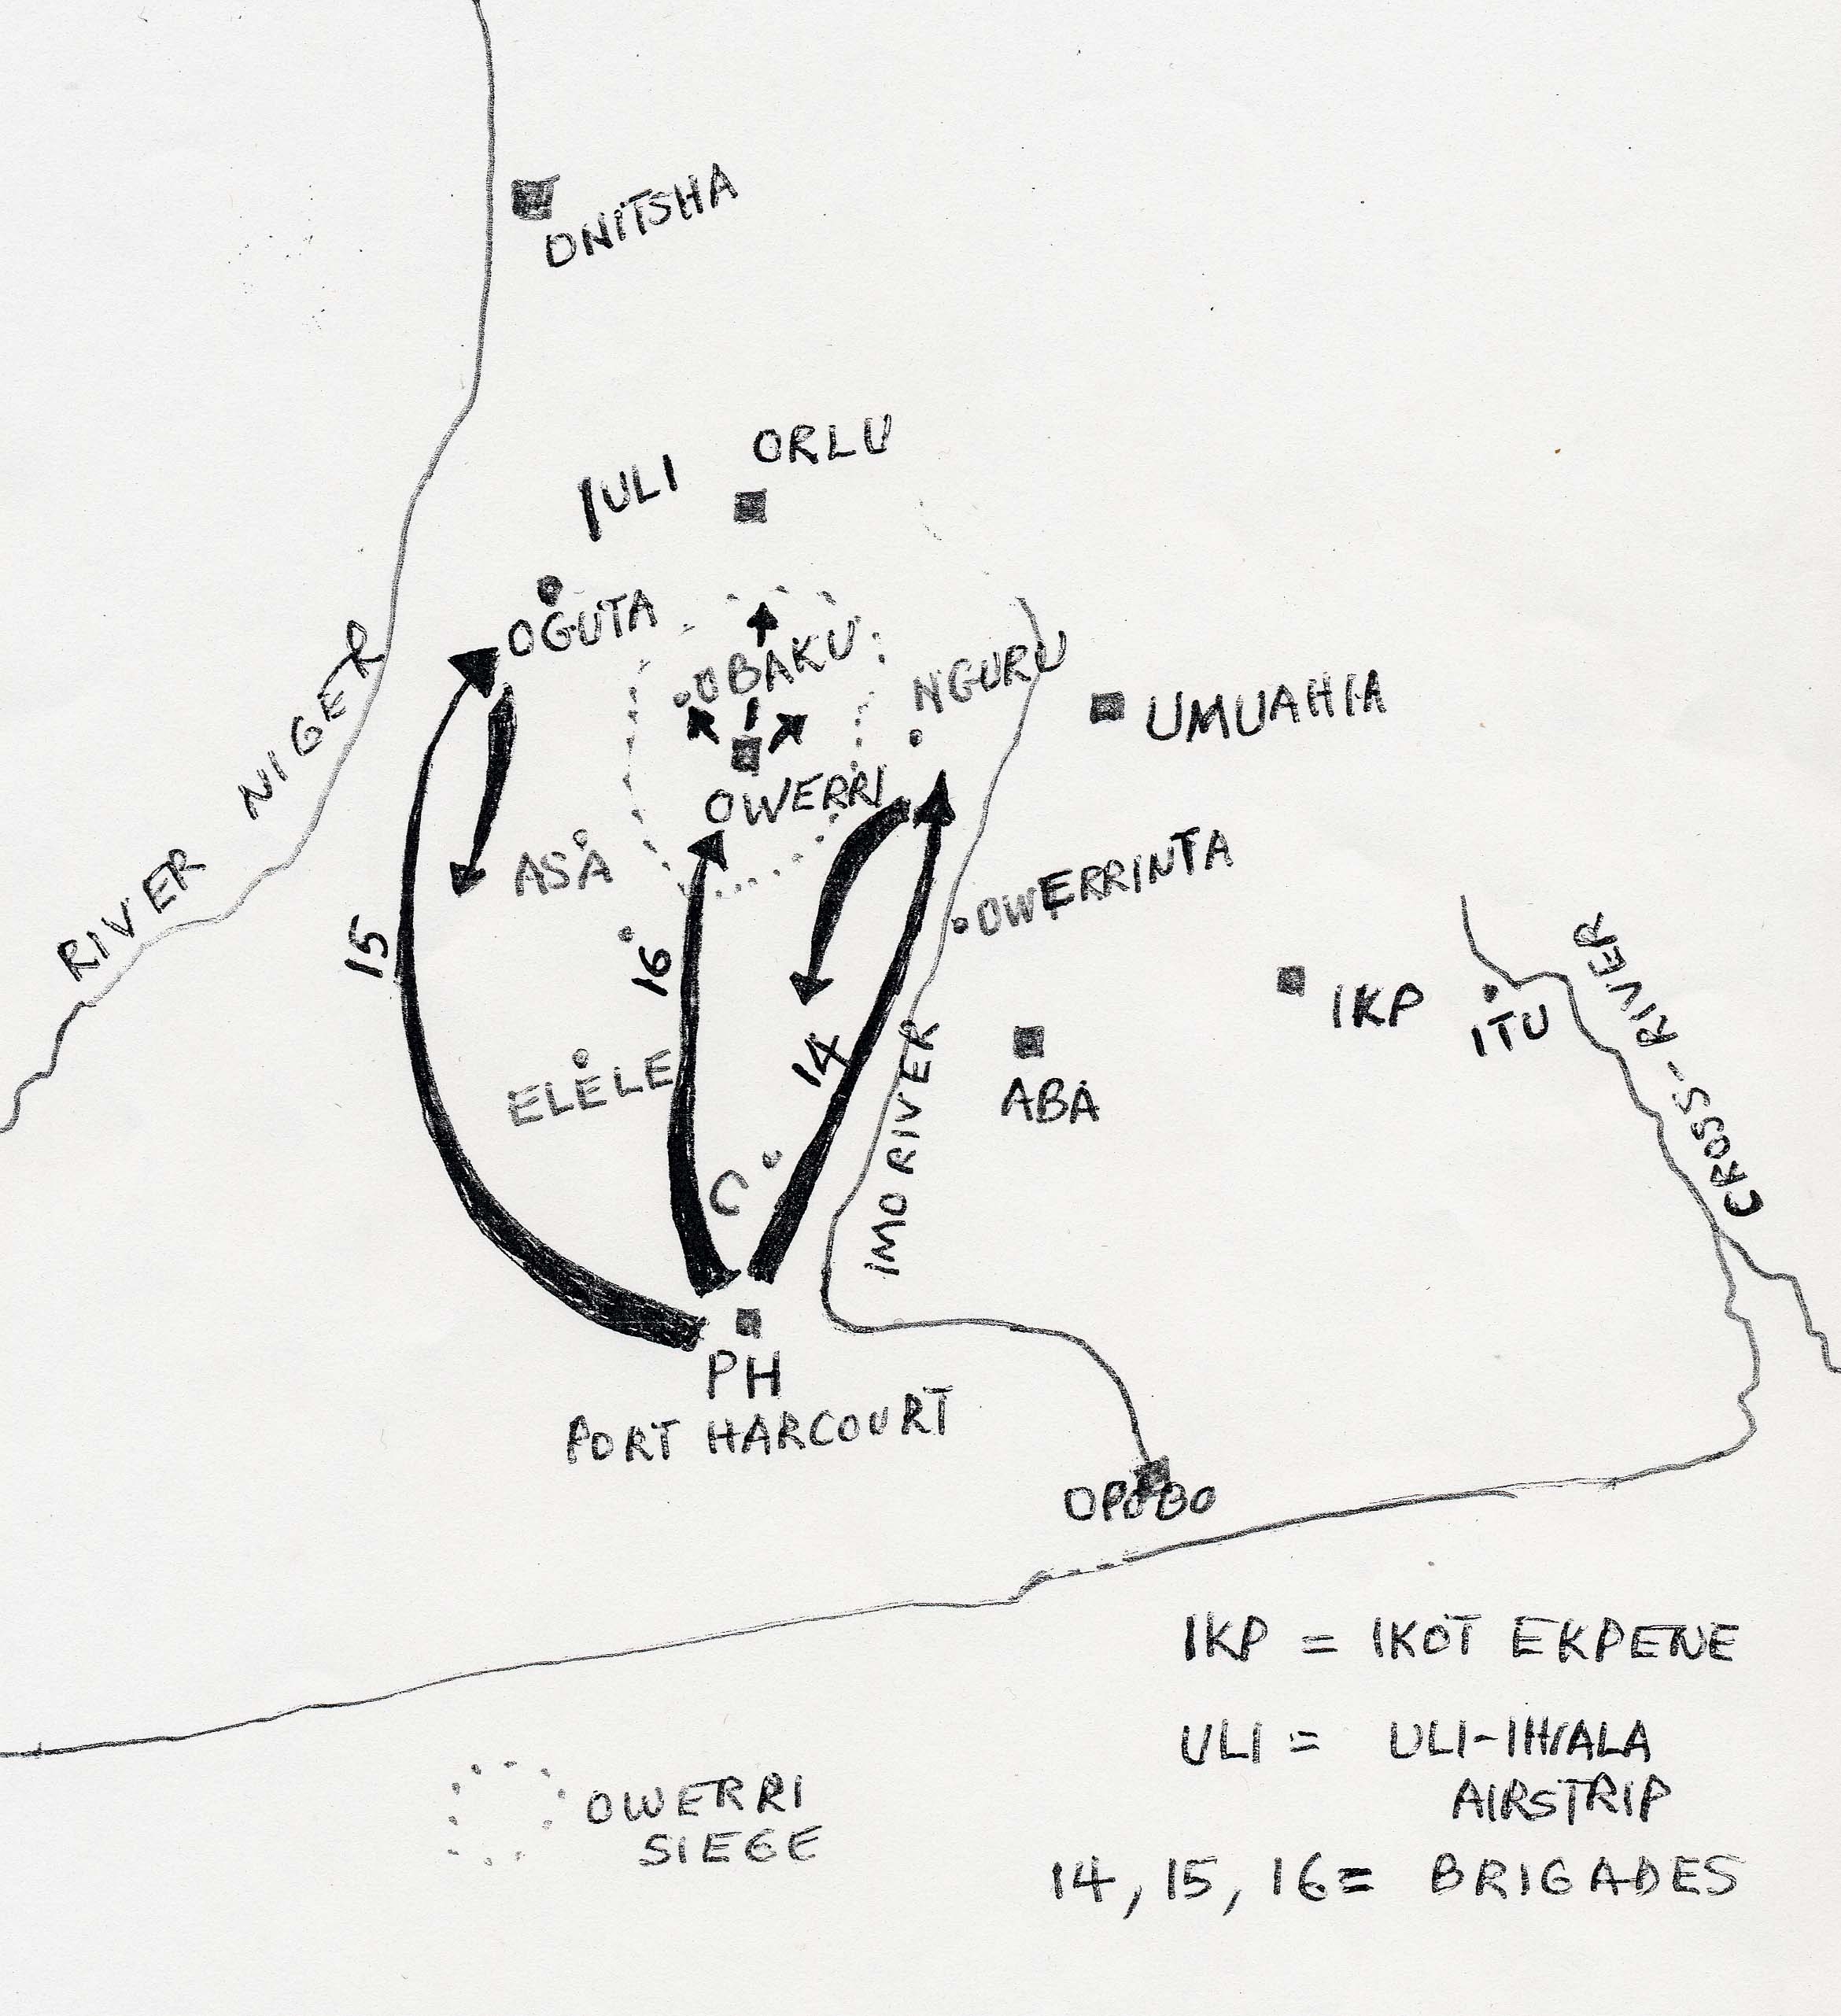 ONITSHA
ORLU
ULI
OGUTA
OBAKU
NGURU
UMUAHIA
RIVER NIGER
OWERRI
ASA
OWERRINTA
15
16
14
IKP
ITU
CROSS-RIVER
ELELE
ABA
IMO RIVER
C
PH
PORT HARCOURT
OPOBO
IKP = IKOT EKPENE
ULI = ULI-IHIALA
AIRSTRIP
OWERRI
SIEGE
14, 15, 16 = BRIGADES